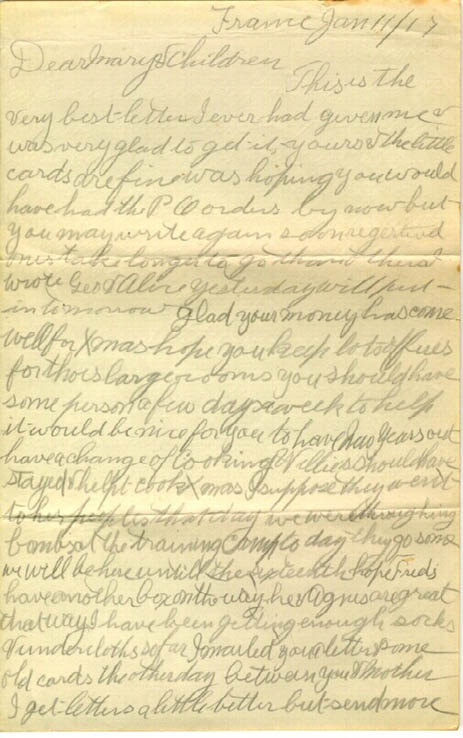 France Jan 11/17
Dear Mary & Children
This is the
very best letter I ever had given me &
was very glad to get it, yours & the little
cards are fine was hoping you would
have had the P O orders by now but
you may write again soon registered
ones take longer to go than others I
wrote Geo & Alice yesterday will put
in tomorrow glad your money has come
well for Xmas hope you keep lots of fires
for those large rooms you should have
some person a few days a week to help
it would be nice for you to have New Years out
have a change of cooking Willies should have
stayed & helpt cook Xmas I suppose they went
to her peoples that day we were throughing
bombs at the training Camp to day they go some
we will be here untill the sixteenth hope Freds
have another box on the way he & Agnes are great
that way I have been getting enough socks
& undercloths so far I mailed you a letter & some
old cards the other day between you & Mother
I get letters a little better but send more